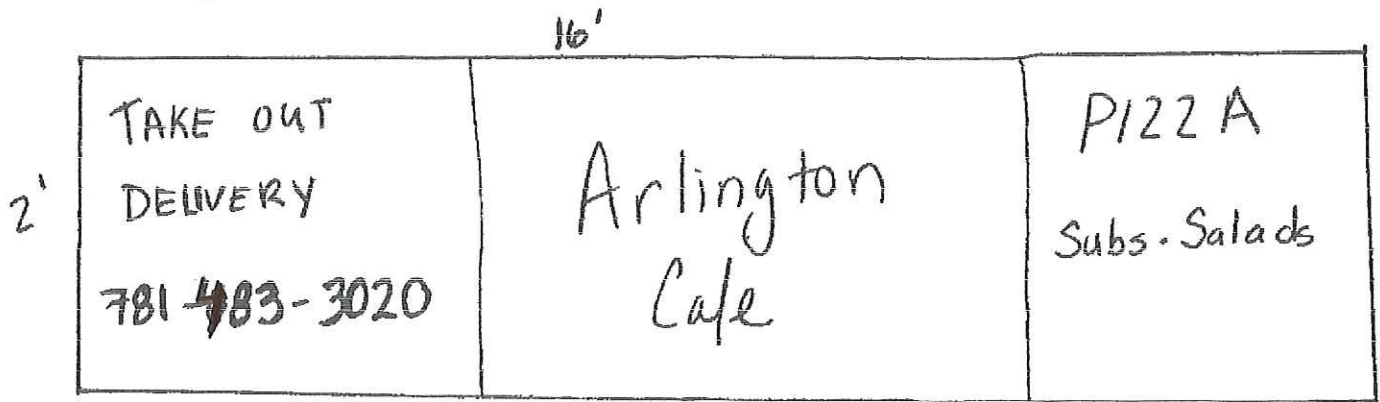 16'
2'
TAKE OUT
DELIVERY
781-483-3020
Arlington
Cafe
PIZZA
Subs. Salads